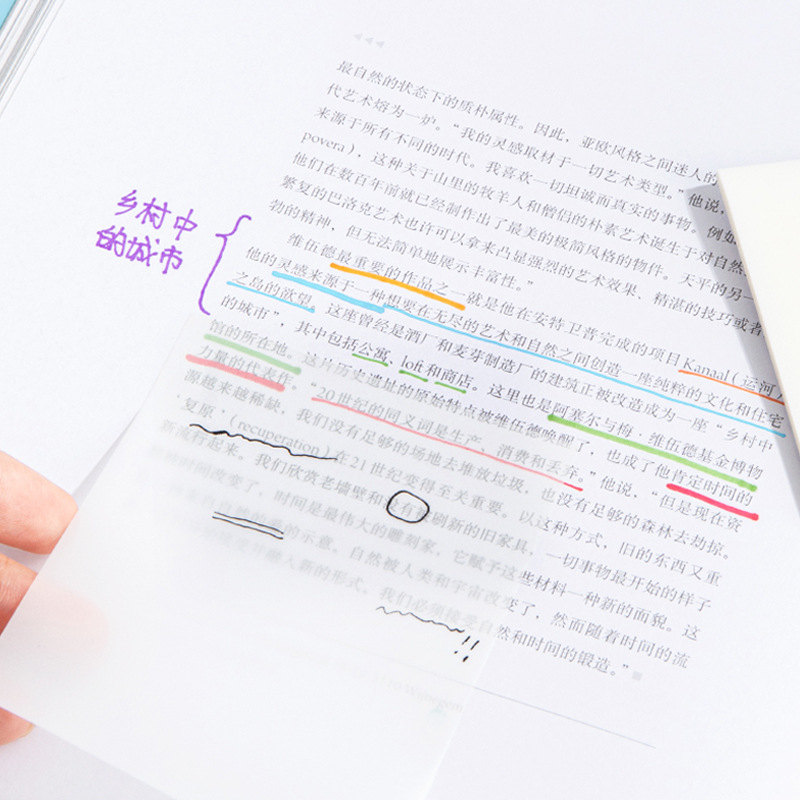 最自然的状态下的质朴属性。因此，亚欧风格之间迷人的
代艺术熔为一炉。“我的灵感取材于一切艺术类型。”他说，
来源于所有不同的时代。我喜欢一切坦诚而真实的事物。例如，
povera），这种关于山里的牧羊人和僧侣的朴素艺术诞生于对自然
他们在数百年前就已经制作出了最美的极简风格的物件。天平的另一
繁复的巴洛克艺术也许可以拿来凸显强烈的艺术效果、精湛的技巧或者
勃的精神，但无法简单地展示丰富性。”
乡村中
的城市
维伍德最重要的作品之一就是他在安特卫普完成的项目Kanaal（运河）
他的灵感来源于一种想要在无尽的艺术和自然之间创造一座纯粹的文化和住宅
之岛的欲望。这座曾经是酒厂和麦芽制造厂的建筑正被改造成为一座“乡村中
的城市”，其中包括公寓、loft和商店。这里也是阿塞尔与博·维伍德基金博物
馆的所在地。这片历史遗址的原始特点被维伍德唤醒了，也成了他肯定时间的
力量的代表作。“20世纪的同义词是生产、消费和丢弃。”他说，“但是现在资
源越来越稀缺，我们没有足够的场地去堆放垃圾，也没有足够的森林去劫掠。
‘复原’（recuperation）在21世纪变得至关重要。以这种方式，旧的东西又重
新流行起来。我们欣赏老墙壁和没有被刷新的旧家具，一切事物最开始的样子
被时间改变了，时间是最伟大的雕刻家，它赋予这些材料一种新的面貌。这
的示意。自然被人类和宇宙改变了，然而随着时间的流
人新的形式。我们必须接受自然和时间的锻造。”
!!